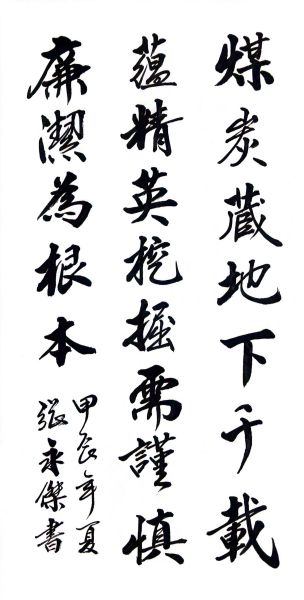 煤炭藏地下千載
蕴精英挖掘需謹慎
廉潔為根本
甲辰年夏
張永傑書